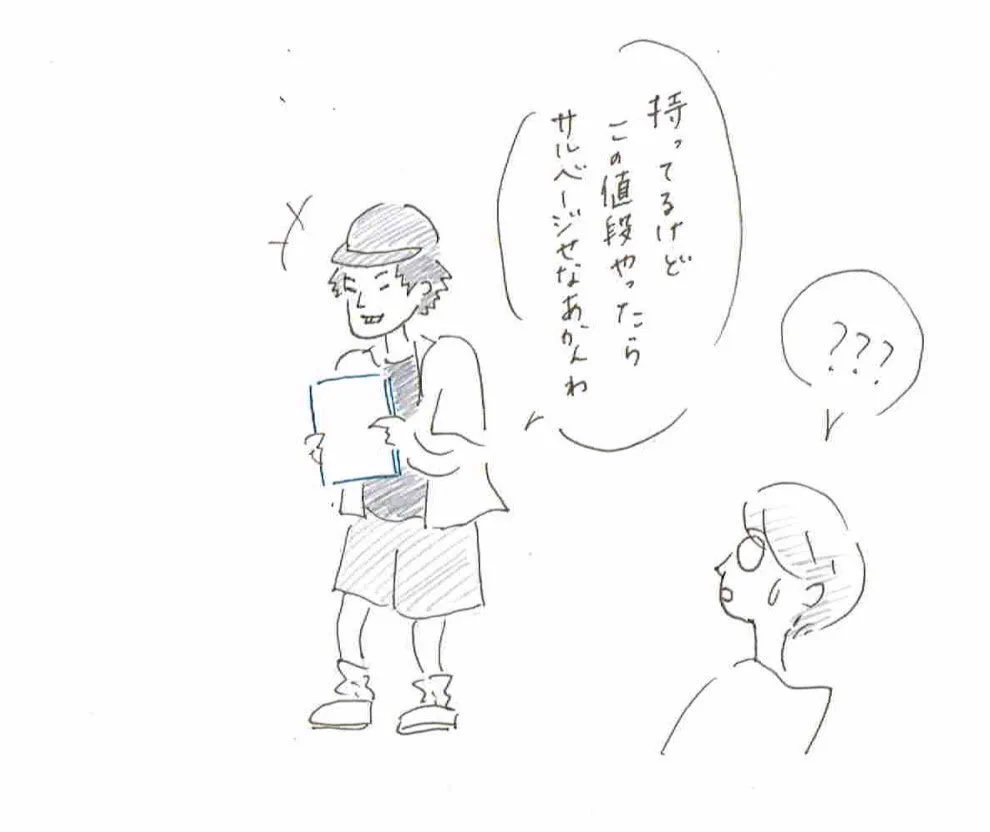 持ってるけど
この値段やったら
サルベージせなあかんわ
???